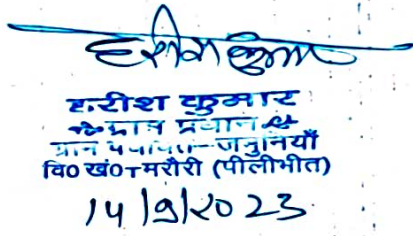 हरीश कुमार
हरीश कुमार
ग्राम प्रधान
ग्राम पंचायत-जमुनियाँ
वि० खं०-मरौरी (पीलीभीत)
14/9/2023